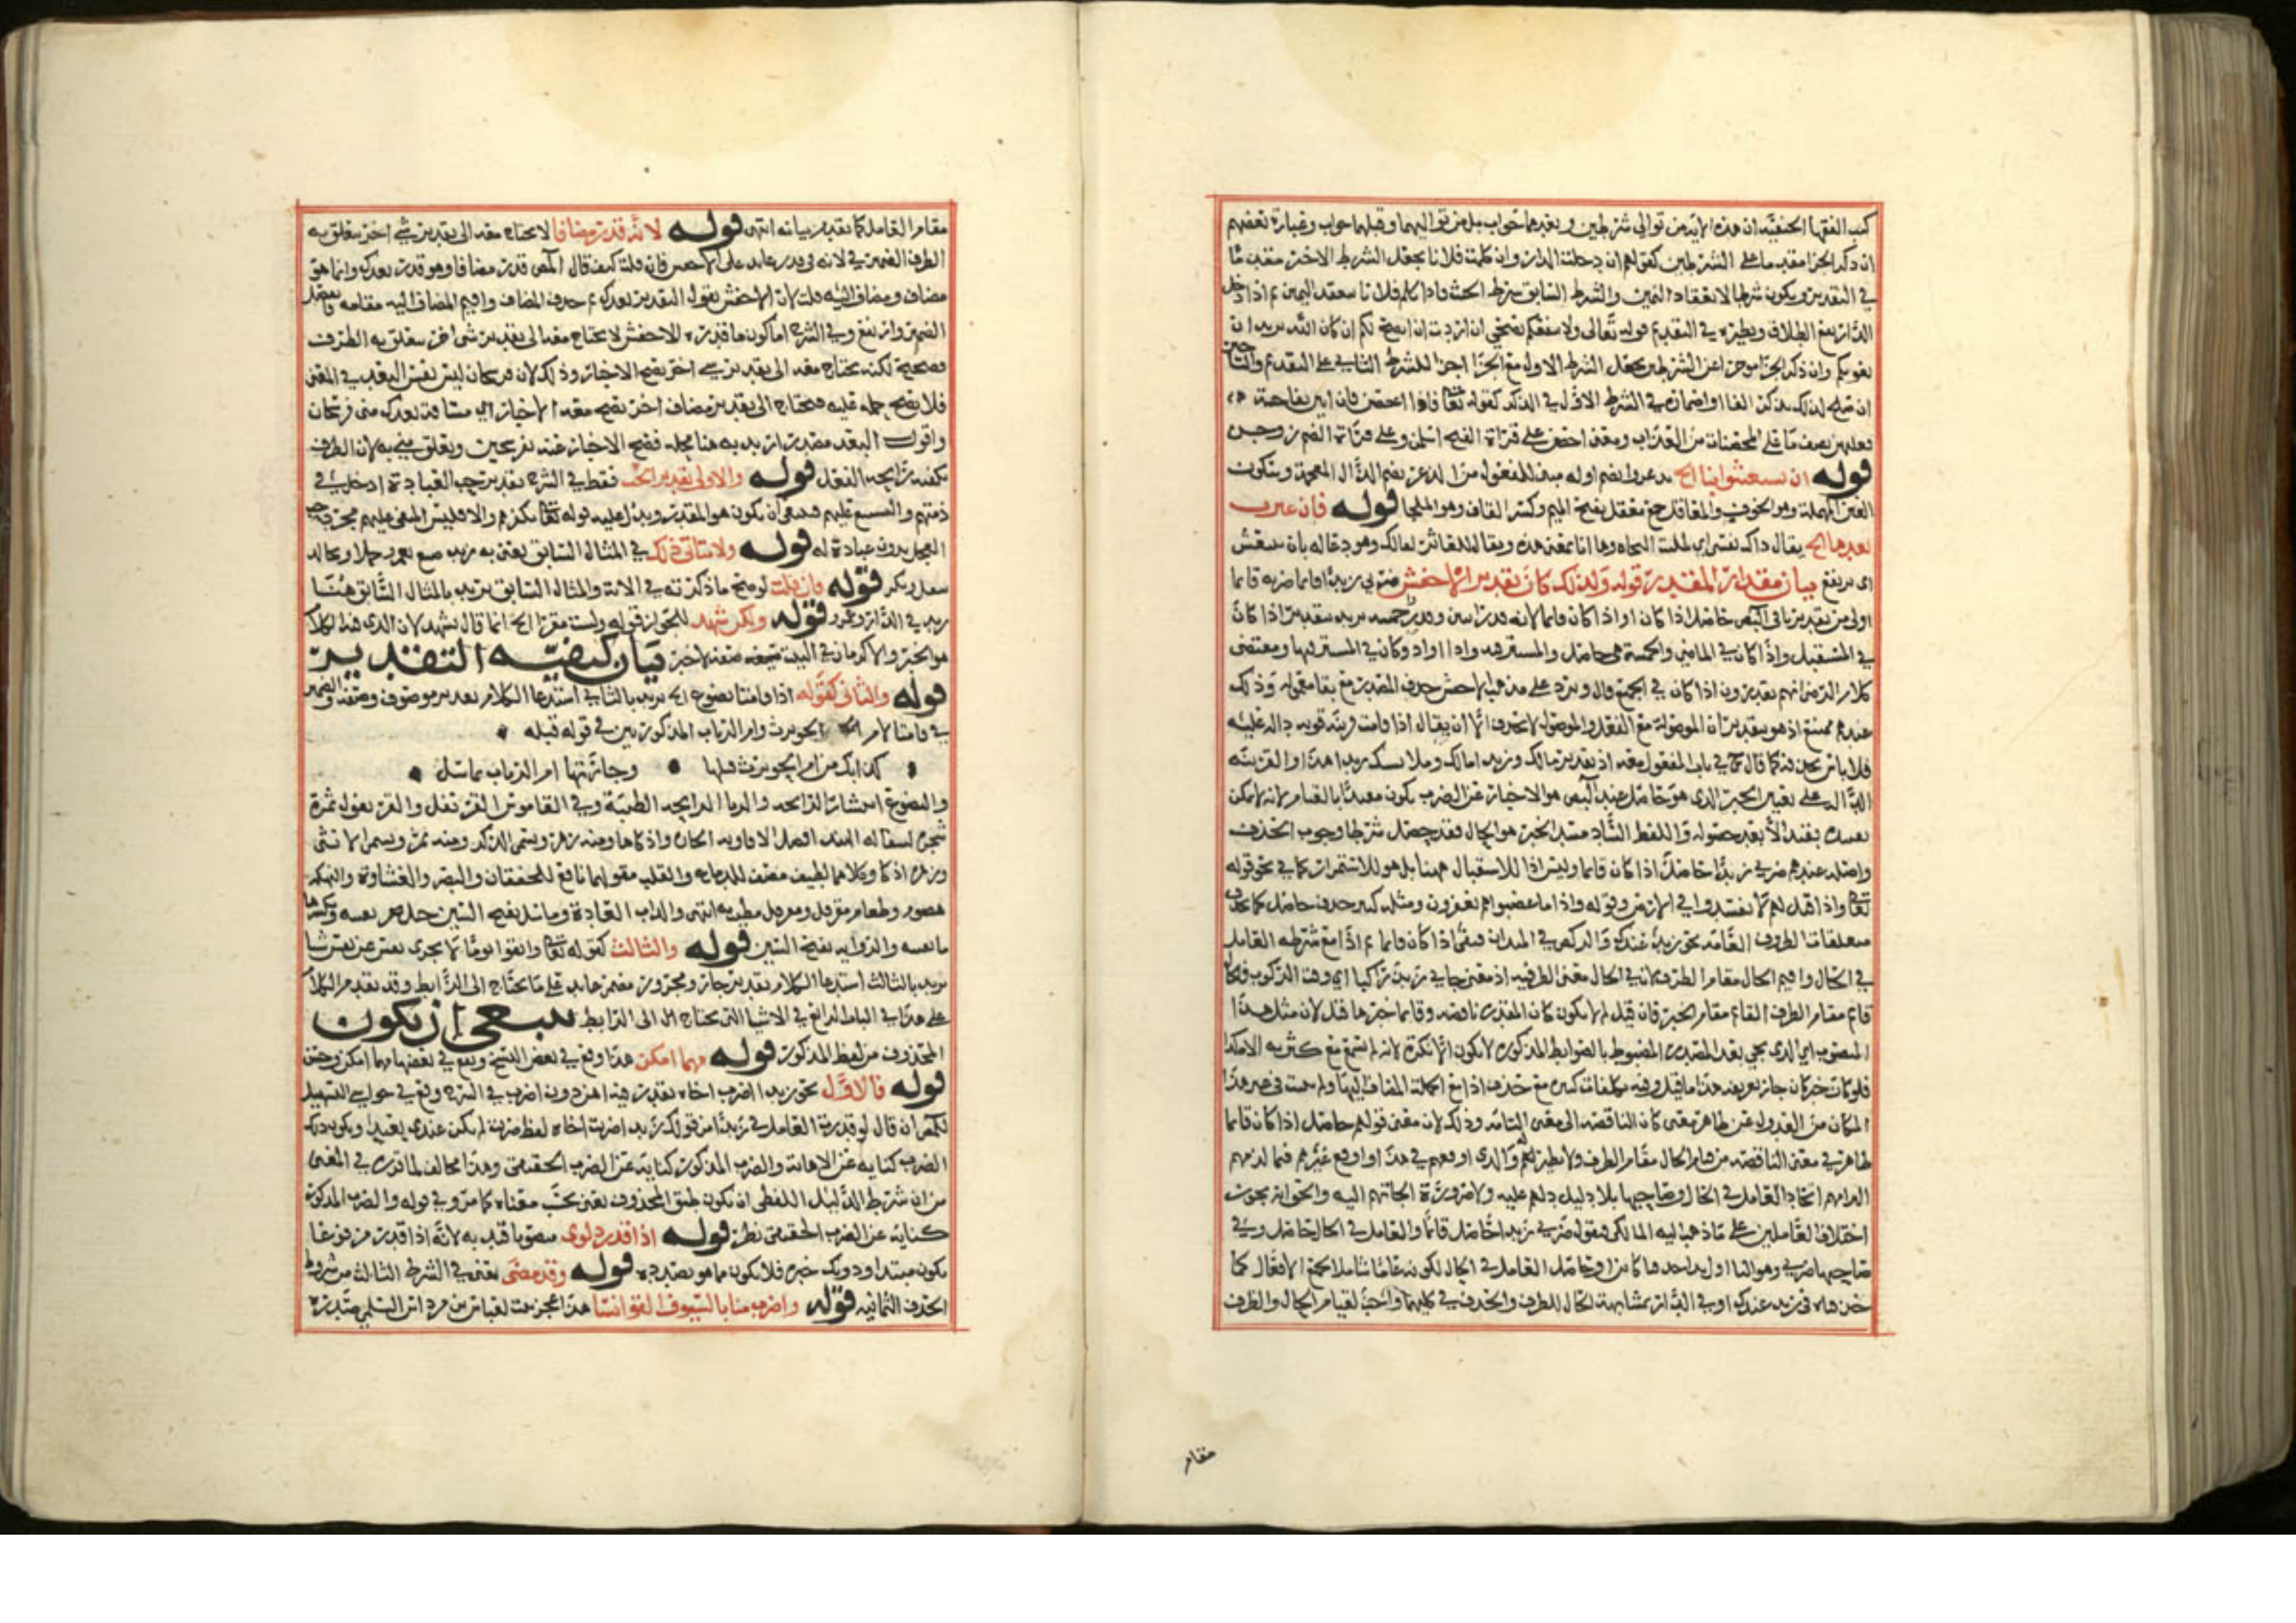 كتب الفقها الحنفية ان هذه الاية من توالي شرطين وبعدهما جواب بل من تواليهما وقبلهما جواب وعبارة بعضهم
ان ذكر الجزا مقدما على الشرطين كقولهم ان دخلت الدار وان كلمت فلانا يجعل الشرط الاخر مقدما
في التقدير ويكون شرطا لانعقاد اليمين والشرط السابق شرط الحنث فاذا كلم فلانا ينعقد اليمين ثم اذا دخل
الدار يقع الطلاق ونظيره في التقديم قوله تعالى ولا ينفعكم نصحي ان اردت ان انصح لكم ان كان الله يريد ان
يغويكم وان ذكر الجزا موخرا عن الشرطين يجعل الشرط الاول مع الجزا اجزا للشرط الثاني على التقديم والتاخير
ان صلح لذلك بذكر الفا او اضماره في الشرط الاول في الذكر كقوله تعالى فاذا احصن فان اتين بفاحشة
فعليهن نصف ما على المحصنات من العذاب ومعنى احصن على قراة الفتح اسلمن وعلى قراة الضم زوجن
قوله ان تستغيثوا بنا الخ تذعروا بضم اوله مبني للمفعول من الذعر بضم الذال المعجمة وسكون
العين المهملة وهو الخوف والمعاقل جمع معقل بفتح الميم وكسر القاف وهو الملجا قوله فان عثرت
بعدها الخ يقال
اى يرتفع بيان مقدار المقدر قوله ولذلك كان تقدير الاخفش ضربي زيدا قايما ضربه قايما
اولى من تقدير باقي البصر حاصل اذا كان او اذا كان قايما لانه قدر اثنين وقدر خمسة يريد بتقدير اذا كان
في المستقبل واذ كان في الماضي والخمسة هي حاصل والمستتر فيه واذا او اذ وكان في المستتر فيها ومقتضى
كلام انهم يقدرون اذا كان في الجميع قال ويرد على مذهب الاخفش حذف المصدر مع بقا معموله وذلك
عندهم ممتنع اذ هو بتقدير ان الموصولة مع الفعل والموصول لا يحذف الا ان يقال اذا قامت قرينة قوية دالة عليه
فلا باس بحذفه كما قال في باب المفعول معه اذ تقدير مالك وزيدا مالك وملابستك زيدا هذا والقرينة
الدالة على تعيين الخبر الذي هو حاصل عند البصر هو الاخبار عن الضرب بكون مقيدا بالقيام لانه لا يمكن
تقييده بقيد الا بعد حصوله واللفظ الساد مسد الخبر هو الحال فقد حصل شرطا وجوب الحذف
واصله عندهم ضربي زيدا حاصل اذا كان قايما وليس اذا للاستقبال هنا بل هو للاستمرار كما في نحو قوله
تعالى واذا قيل لهم لا تفسدوا في الارض وقوله واذا ما غضبوا هم يغفرون ومثله كثير حذف حاصل كما يحذف
متعلقات الظروف العامة نحو زيد عندك والركض في الميدان فبقي اذا كان قايما ثم اذا مع شرطه العامل
في الحال واقيم الحال مقام الظرف لان في الحال معنى الظرفية اذ معنى جاني زيد راكبا اي وقت الركوب
قام مقام الظرف القائم مقام الخبر فان قيل لم لا يكون كان المقدرة ناقصة وقايما خبرها قيل لان مثل هذا
المنصوب اي الذي يجي بعد المصدر المضبوط بالضوابط المذكورة لا يكون الا نكرة لانه لم يسمع مع كثرته الا كذا
فلو كان خبر كان جاز تعريفه هذا ما قيل وفيه تكلفات كثيرة مع حذف اذا مع الجملة المضاف اليها ولم يثبت في غير هذا
المكان من العدول عن ظاهر معنى كان الناقصة الى معنى التامة وذلك لان معنى قولهم حاصل اذا كان قايما
ظاهر في معنى الناقصة من قيام الحال مقام الظرف ولا نظير لهم والذي اوقعهم في هذا او اوقع غيرهم فيما لزمهم
التزامهم اتحاد العامل في الحال وصاحبها بلا دليل دلهم عليه ولا ضرورة الجاتهم اليه والحق انه يجوز
اختلاف العاملين على ما ذهب اليه المالكي فنقول ضربي زيدا حاصل قائما والعامل في الحال حاصل وفي
صاحبها ضربي
خلفك في زيد عندك او في الدار بمشابهة الحال للظرف والحذف في كليهما واجب لقيام الحال والظرف
مقام
مقام العامل كما تقدم بيانه انتهى قوله لانه قدر مضافا لا يحتاج معه الى تقدير شي اخر يتعلق به
الظرف الضمير في لانه في قدر عايد على الاخفش فان قلت كيف قال المص قدر مضافا وهو قدر بعدك وانما هو
مضاف ومضاف اليه قلت لان الاخفش يقول التقدير بعدك ثم حذف المضاف واقيم المضاف اليه مقامه فانفصل
الضمير وارتفع وفي الشرح اما كون ما قدره الاخفش لا يحتاج معه الى تقدير شي اخر يتعلق به الظرف
فصحيح لكنه يحتاج معه الى تقدير شي اخر يصح الاخبار وذلك لان فرسخان ليس نفس البعد في المعنى
فلا يصح حمله عليه فيحتاج الى تقدير مضاف اخر يصح معه الاخبار اي مسافة بعدك مني فرسخان
واقول البعد مصدر اريد به هنا محله فصح الاخبار عنه بفرسخين وتعلق مني به لان الظرف
تكفيه رايحة الفعل قوله والاولى تقدير الحب فقط في الشرح تقدير حب العبادة ادخل في
ذمهم والتشنيع عليهم فينبغي ان يكون هو المقدر ويدل عليه قوله تعالى بكفرهم والا فليس المنعي عليهم مجرد حب
العجل بدون عبادة له قوله ولا يتاتى ذلك في المثال السابق يعني به
قوله فان قلت لو صح ما ذكرته في الاية والمثال السابق يريد بالمثال السابق هنا
زيد في الدار وعمرو قوله ويكن شهد للجواز قوله ولست مقرا الخ انما قال يشهد لان الذي هذا الكلام
بيان كيفية التقدير
قوله والثاني كقوله اذا قامتا تضوع الخ يريد بالثاني استدعا الكلام تقدير موصوف وصفة والضمير
في قامتا لام الحويرث وام الرباب المذكورتين في قوله قبله
كدابك من ام الحويرث قبلها وجارتها ام الرباب بماسل
والتضوع انتشار الرائحة والريا الرايحة الطيبة وفي القاموس القرنفل والقرنفول ثمرة
شجرة بسفالة الهند افضل الافاويه الحارة واذكاها ومنه زهر ويسمى الذكر ومنه ثمر ويسمى الانثى
وزهره اذكى وكلاهما لطيف مصف للدماغ والقلب مقو لهما نافع للخفقان والبصر والغشاوة
وطعام مقرفل ومقرنف مطيب به انتهى والداب العادة وماسل بفتح السين جبل
ما بعينه والرواية بفتح السين قوله والثالث كقوله تعالى واتقوا يوما لا تجزى نفس عن نفس شيا
يريد بالثالث استدعا الكلام تقدير جار ومجرور مضمر عايد على ما يحتاج الى الرابط وقد تقدم الكلام
على هذا في الباب الرابع في الاشيا التي تحتاج الى الرابط ينبغي ان يكون
المحذوف من لفظ المذكور قوله مهما امكن هذا وقع في بعض النسخ ووقع في بعضها مهما امكن وحسن
قوله فالاول نحو زيدا اضرب اخاه يقدر فيه اهن دون اضرب في الشرح وقع في حواشي التسهيل
للمص ان قال لو قدرت العامل في زيدا من قولك زيدا ضربت اخاه لفظ ضربت لم يكن عندي بعيدا ويكون ذلك
الضرب كناية عن الاهانة والضرب المذكور كناية عن الضرب الحقيقي وهذا مخالف لما قرره في المغني
من ان شرط الدليل اللفظي ان يكون طبق المحذوف يعني بحسب معناه كما مر وفي قوله والضرب المذكور
كناية عن الضرب الحقيقي نظر قوله اذا قدر دلوي منصوبا قيد به لانه اذا قدر مرفوعا
يكون مبتدا ودونك خبره فلا يكون مما هو بصدده قوله وقد مضى يعني في الشرط الثالث من شروط
الحذف الثمانية قوله واضرب منا بالسيوف القوانسا هذا عجز بيت لعباس بن مرداس السلمي صدره